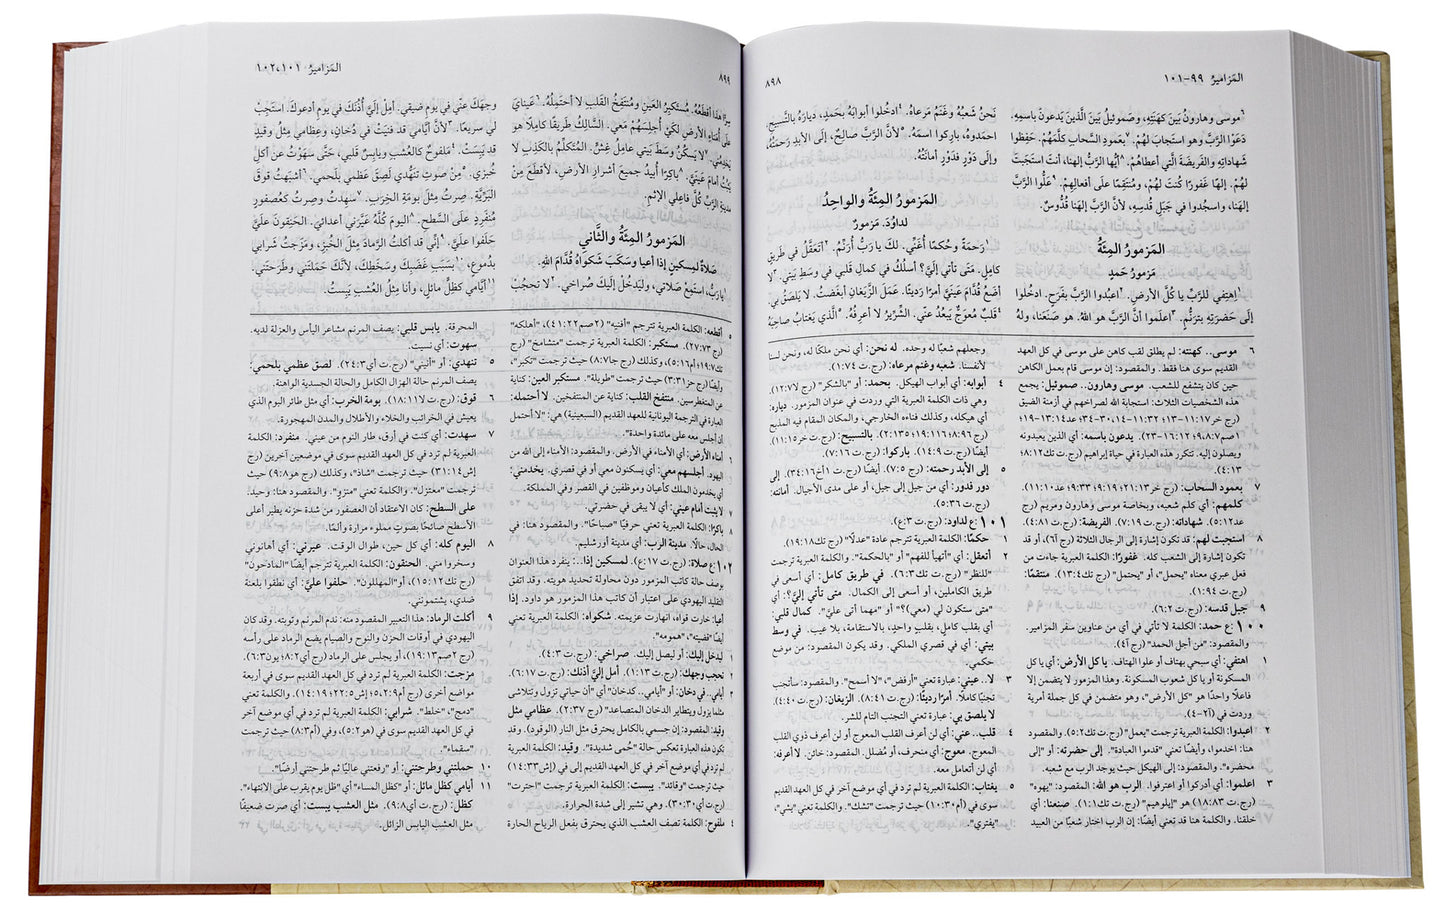 المَزامير ٩٩-١٠١
٨٩٨
٦موسى وهارونُ بَينَ كهَنَتِهِ، وصَموئيلُ بَينَ الَّذينَ يَدعونَ باسمِهِ.
دَعَوْا الرَّبَّ وهو استَجابَ لهُمْ. ٧بعَمودِ السَّحابِ كلَّمَهُمْ. حَفِظوا
شَهاداتِهِ والفَريضَةَ الّتي أعطاهُمْ. ٨أيُّها الرَّبُّ إلهنا، أنتَ استَجَبتَ
لهُمْ. إلهًا غَفورًا كُنتَ لهُمْ، ومُنتَقِمًا علَى أفعالِهِمْ. ٩عَلّوا الرَّبَّ
إلهَنا، واسجُدوا في جَبَلِ قُدسِهِ، لأنَّ الرَّبَّ إلهَنا قُدّوسٌ.
المَزمورُ المِئَةُ
مَزمورُ حَمدٍ
١اِهتِفي للرَّبِّ يا كُلَّ الأرضِ. ٢اعبُدوا الرَّبَّ بفَرَحٍ. ادخُلوا
إلَى حَضرَتِهِ بترَنُّمٍ. ٣اعلَموا أنَّ الرَّبَّ هو اللهُ. هو صَنَعَنا، ولهُ
نَحنُ شَعبُهُ وغَنَمُ مَرعاهُ. ٤ادخُلوا أبوابَهُ بحَمدٍ، ديارَهُ بالتَّسبيحِ.
احمَدوهُ، بارِكوا اسمَهُ. ٥لأنَّ الرَّبَّ صالِحٌ، إلَى الأبدِ رَحمَتُهُ،
وإلَى دَوْرٍ فدَوْرٍ أمانَتُهُ.
المَزمورُ المِئَةُ والواحِدُ
لداوُدَ. مَزمورٌ
١رَحمَةً وحُكمًا أُغَنّي. لكَ يا رَبُّ أُرَنِّمُ. ٢أتَعَقَّلُ في طَريقٍ
كامِلٍ. مَتَى تأتي إلَيَّ؟ أسلُكُ في كمالِ قَلبي في وسَطِ بَيتي. ٣لا
أضَعُ قُدّامَ عَينَيَّ أمرًا رَديئًا. عَمَلَ الزَّيَغانِ أبغَضتُ. لا يَلصَقُ بي.
٤قَلبٌ مُعوَجٌّ يَبعُدُ عَنّي. الشِّرّيرُ لا أعرِفُهُ. ٥الّذي يَغتابُ صاحِبَهُ
٦ موسى.. كهنته: لم يطلق لقب كاهن على موسى في كل العهد
القديم سوى هنا فقط. والمقصود: إن موسى قام بعمل الكاهن
حين كان يتشفع للشعب. موسى وهارون.. صموئيل: يجمع
هذه الشخصيات الثلاث: استجابة الله لصراخهم في أزمنة الضيق
يدعون باسمه: أي الذين يعبدونه
ويصلون إليه. تتكرر هذه العبارة في حياة إبراهيم (رج ت تك١٢:٨؛
١٣:٤).
٧ بعمود السحاب: (رج خر١٣:٢١؛ ١٩:٩؛ ٣٣:٩؛ عد١٠:١١).
كلمهم: أي كلم شعبه، وبخاصة موسى وهارون ومريم (رج
عد١٢:٥). شهاداته: (رج.ت ١٩:٧). الفريضة: (رج.ت ٨١:٤).
٨ استجيت لهم: قد تكون إشارة إلى الرجال الثلاثة (رج آ٦)، أو قد
تكون إشارة إلى الشعب كله. غفورًا: الكلمة العبرية جاءت من
فعل عبري معناه "يحمل"، أو "يحتمل" (رج تك٤:١٣). منتقمًا:
(رج.ت ٩٤:١).
٩ جبل قدسه: (رج.ت ٢:٦).
١٠٠ :ع حمد: الكلمة لا تأتي في أي من عناوين سفر المزامير.
والمقصود: "من أجل الحمد" (رج آ٤).
١ اهتفي: أي سبحي بهتاف أو علوا الهتاف. يا كل الأرض: أي يا كل
المسكونة أو يا كل شعوب المسكونة. وهذا المزمور لا يتضمن إلا
فاعلًا واحدًا هو "كل الأرض"، وهو متضمن في كل جملة أمرية
وردت في (آ٢-٤).
٢ اعبدوا: الكلمة العبرية ترجمت "يعمل" (رج.ت تك٢:٥). والمقصود
هنا: اخدموا، وأيضًا تعني "قدموا العبادة". إلى حضرته: أو "إلى
محضره". والمقصود: إلى الهيكل حيث يوجد الرب مع شعبه.
٣ اعلموا: أي أدركوا أو اعترفوا. الرب هو الله: المقصود: "يهوه"
(رج.ت ١٨:٨٣) هو "إيلوهيم" (رج.ت تك١:١). صنعنا: أي
خلقنا. والكلمة هنا قد تعني أيضًا: إن الرب اختار شعبًا من العبيد
وجعلهم شعبًا له وحده. له نحن: أي نحن ملكًا له، ونحن لسنا
لأنفسنا. شعبه وغنم مرعاه: (رج.ت ٧٤:١).
٤ أبوابه: أي أبواب الهيكل. بحمد: أو "بالشكر" (رج لا٧:١٢).
وهي ذات الكلمة العبرية التي وردت في عنوان المزمور. دياره:
أي هيكله، وكذلك فناءه الخارجي، والمكان المقام فيه المذبح
(رج ٩٦:٨؛ ١١٦:١٩؛ ١٣٥:٢). بالتسبيح: (رج.ت خر١٥:١١).
أيضًا (رج.ت ٩:١٤). باركوا: (رج.ت ١٦:٧).
٥ إلى الأبد رحمته: (رج.ت ٥:٧). أيضًا (رج.ت ١أخ١٦:٣٤). إلى
دور فدور: أي من جيل إلى جيل، أو على مدى الأجيال. أمانته:
(رج.ت ٣٦:٥).
١٠١ :ع لداود: (رج.ت ٣:ع).
١ حكمًا: الكلمة العبرية تترجم عادة "عدلًا" (رج.ت تك١٨:١٩).
٢ أتعقل: أي "أتهيأ للفهم" أو "بالحكمة". والكلمة العبرية ترجمت
"للنظر" (رج.ت تك٣:٦). في طريق كامل: أي أسعى في
طريق الكاملين، أو أسعى إلى الكمال. متى تأتي إليَّ؟: أي
"متى ستكون لي (معي)؟" أو "مهما أتى عليَّ". كمال قلبي:
أي بقلب كامل، بقلب واحد، بالاستقامة، بلا عيب. في وسط
بيتي: أي في قصري الملكي. وقد يكون المقصود: من موضع
حكمي.
٣ لا.. عيني: عبارة تعني "أرفض"، "لا أسمح". والمقصود: سأتجنب
تجنبًا كاملًا. أمرًا رديئًا: (رج.ت ٤١:٨). الزيغان: (رج.ت ٤٠:٤).
لا يلصق بي: عبارة تعني التجنب التام للشر.
٤ قلب.. عني: أي لن أعرف القلب المعوج أو لن أعرف ذوي القلب
المعوج. معوج: أي منحرف، أو مُضلل. المقصود: خائن. لا أعرفه:
أي لن أتعامل معه.
٥ يغتاب: الكلمة العبرية لم ترد في أي موضع آخر في كل العهد القديم
سوى في (أم٣٠:١٠) حيث ترجمت "تشك". والكلمة تعني "يشي"،
"يفتري".
٨٩٩
المَزاميرُ ١٠١، ١٠٢
سِرًّا هذا أقطَعُهُ. مُستَكبِرُ العَينِ ومُنتَفِخُ القَلبِ لا أحتَمِلُهُ. ٦عَينايَ
علَى أُمَناءِ الأرضِ لكَيْ أُجلِسَهُمْ مَعي. السّالِكُ طَريقًا كامِلًا هو
يَخدِمُني. ٧لا يَسكُنُ وسَطَ بَيتي عامِلُ غِشٍّ. المُتَكَلِّمُ بالكَذِبِ لا
يَثبُتُ أمامَ عَينَيَّ. ٨باكِرًا أُبيدُ جميعَ أشرارِ الأرضِ، لأقطَعَ مِنْ
مدينةِ الرَّبِّ كُلَّ فاعِلي الإثمِ.
المَزمورُ المِئَةُ والثّاني
صَلاةٌ لمِسكينٍ إذا أعيا وسَكَبَ شَكواهُ قُدّامَ اللهِ.
١يا رَبُّ، استَمِعْ صَلاتي، وليَدخُلْ إلَيكَ صُراخي. ٢لا تحجُبْ
وجهَكَ عَنّي في يومِ ضيقي. أمِلْ إلَيَّ أُذُنَكَ في يومِ أدعوكَ. استَجِبْ
لي سريعًا. ٣لأنَّ أيّامي قد فنيَتْ في دُخانٍ، وعِظامي مِثلُ وقيدٍ
قد يَبِسَتْ. ٤مَلفوحٌ كالعُشبِ ويابِسٌ قلبي، حتَّى سهَوْتُ عن أكلِ
خُبزي. ٥مِنْ صوتِ تنَهُّدي لَصِقَ عَظمي بلَحمي. ٦أشبَهتُ قوقَ
البَرّيَّةِ. صِرتُ مِثلَ بومَةِ الخِرَبِ. ٧سَهِدتُ وصِرتُ كعُصفورٍ
مُنفَرِدٍ علَى السَّطحِ. ٨اليومَ كُلَّهُ عَيَّرَني أعدائي. الحَنِقونَ علَيَّ
حَلَفوا علَيَّ. ٩إنّي قد أكلتُ الرَّمادَ مِثلَ الخُبزِ، ومَزَجتُ شَرابي
بدُموعٍ، ١٠بسَبَبِ غَضَبِكَ وسَخَطِكَ، لأنَّكَ حَمَلتَني وطَرَحتَني.
١١أيّامي كظِلٍّ مائلٍ، وأنا مِثلُ العُشبِ يَبِستُ.
٥ أقطعه: الكلمة العبرية تترجم "أفنيه" (٢صم٢٢:٤١)، "أهلكه"
(رج ٧٣:٢٧). مستكبر: الكلمة العبرية ترجمت "متشامخ" (رج
جا٧:٨) حيث ترجمت "تكبر"،
وأيضًا (رج حز٣١:٣) حيث ترجمت "طويلة". مستكبر العين: كناية
عن المتغطرسين. منتفخ القلب: كناية عن المنتفخين. لا أحتمله:
العبارة في الترجمة اليونانية للعهد القديم (السبعينية) هي: "لا أحتمل
أن أجلس معه على مائدة واحدة".
٦ أمناء الأرض: أي الأمناء في الأرض. والمقصود: الأمناء إلى الله من
اليهود. أجلسهم معي: أي يسكنون معي أو في قصري. يخدمني:
أي يخدمون الملك كأعيان وموظفين في القصر وفي المملكة.
٧ لا يثبت أمام عيني: أي لا يبقى في حضرتي.
٨ باكرًا: الكلمة العبرية تعني حرفيًا "صباحًا". والمقصود هنا: في
الحال، حالًا. مدينة الرب: أي مدينة أورشليم.
١٠٢ :ع صلاة: (رج.ت ١٧:ع). لمسكين إذا..: ينفرد هذا العنوان
بوصف حالة كاتب المزمور دون محاولة تحديد هويته. وقد اتفق
التقليد اليهودي على اعتبار أن كاتب هذا المزمور هو داود. إذا
أعيا: خارت قواه، انهارت عزيمته. شكواه: الكلمة العبرية تعني
أيضًا "قضيته"، "همومه".
١ ليدخل إليك: أو ليصل إليك. صراخي: (رج.ت ٤:٣).
٢ تحجب وجهك: (رج.ت ١٣:١). أمل إليَّ أذنك: (رج.ت ١٧:٦).
٣ أيامي.. في دخان: أو "أيامي.. كدخان" أي "أن حياتي تزول وتتلاشى
مثلما يزول ويتطاير الدخان المتصاعد" (رج ٣٧:٢). عظامي مثل
وقيد: المقصود: إن جسمي بالكامل يحترق مثل النار (الوقود). وقد
تكون هذه العبارة تعكس حالة "حُمى شديدة". وقيد: الكلمة العبرية
لم ترد في أي موضع آخر في كل العهد القديم إلى في (إش٣٣:١٤)
حيث ترجمت "وقائد". يبست: الكلمة العبرية ترجمت "احترت"
(رج.ت أي٣٠:٣٠). وهي تشير إلى شدة الحرارة.
٤ ملفوح: الكلمة تصف العشب الذي يحترق بفعل الرياح الحارة
المحرقة. يابس قلبي: يصف المرنم مشاعر اليأس والعزلة لديه.
سهوت: أي نسيت.
٥ تنهدي: أو "أنيني" (رج.ت أي٣:٢٤). لصق عظمي بلحمي:
يصف المرنم حالة الهزال الكامل والحالة الجسدية الواهنة.
٦ قوق: (رج.ت لا١١:١٨). بومة الخرب: أي مثل طائر البوم الذي
يعيش في الخرائب والخلاء والأطلال والمدن المهجورة.
٧ سهدت: أي كنت في أرق، طار النوم من عيني. منفرد: الكلمة
العبرية لم ترد في كل العهد القديم سوى في موضعين آخرين (رج
إش١٤:٣١) حيث ترجمت "شاذ"، وكذلك (رج هو٨:٩) حيث
ترجمت "معتزل". والكلمة تعني "منزو". والمقصود هنا: وحيد.
على السطح: كان الاعتقاد أن العصفور من شدة حزنه يطير أعلى
الأسطح صائحًا بصوت مملوء مرارة وألمًا.
٨ اليوم كله: أي كل حين، طوال الوقت. عيرني: أي أهانوني
وسخروا مني. الحنقون: الكلمة العبرية ترجمت أيضًا "المادحون"
(رج.ت تك١٢:١٥)، أو "المهللون". حلفوا عليَّ: أي نطقوا بلعنة
ضدي، يشتمونني.
٩ أكلت الرماد: هذا التعبير المقصود منه: ندم المرنم وتوبته. وقد كان
اليهودي في أوقات الحزن والنوح والصيام يضع الرماد على رأسه
(رج ٢صم١٣:١٩)، أو يجلس على الرماد (رج أي٢:٨؛ يون٣:٦).
مزجت: الكلمة العبرية لم ترد في كل العهد القديم سوى في أربعة
مواضع أخرى (رج أم٩:٢، ٥؛ إش٥:٢٢؛ ١٩:١٤). والكلمة تعني
"دمج"، "خلط". شرابي: الكلمة العبرية لم ترد في أي موضع آخر
في كل العهد القديم سوى في (هو٢:٥)، وفي (أم٣:٨) حيث ترجمت
"سقماء".
١٠ حملتني وطرحتني: أو "رفعتني عاليًا ثم طرحتني أرضًا".
١١ أيامي كظل مائل: أو "كظل المساء" أي "ظل يوم يقرب على الانتهاء".
كظل: (رج.ت أي٨:٩). مثل العشب يبست: أي صرت ضعيفًا
مثل العشب اليابس الزائل.